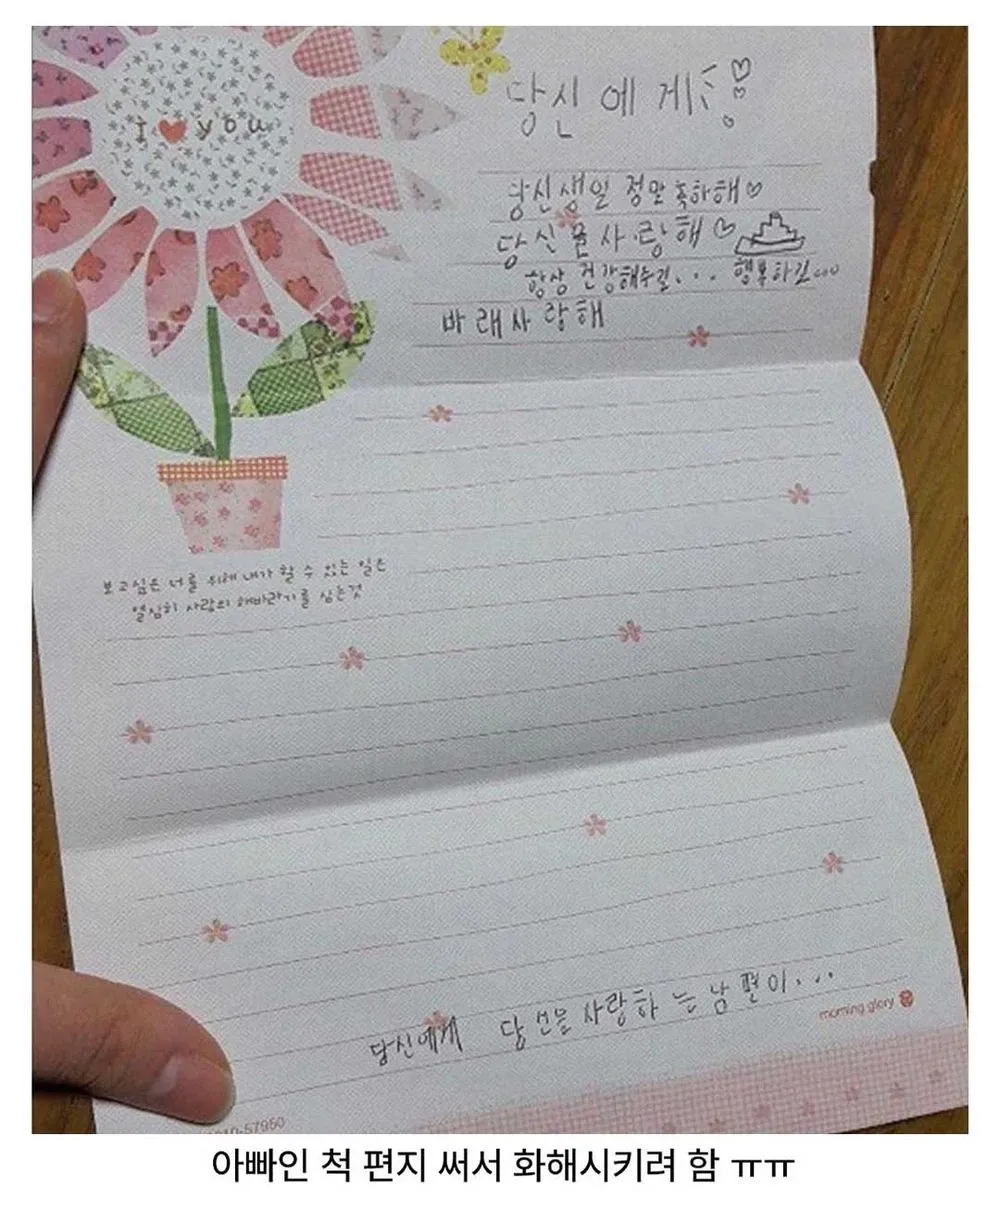 I ♥ you
당신에게
당신생일 정말 축하해♡
당신을 사랑해♡
항상 건강해주길... 행복하길...
바래사랑해
보고싶은 너를 위해 내가 할 수 있는 일은
열심히 사랑의 해바라기를 심는것
당신에게 당신을 사랑하는남편이...
morning glory
10-57950
아빠인 척 편지 써서 화해시키려 함 ㅠㅠ